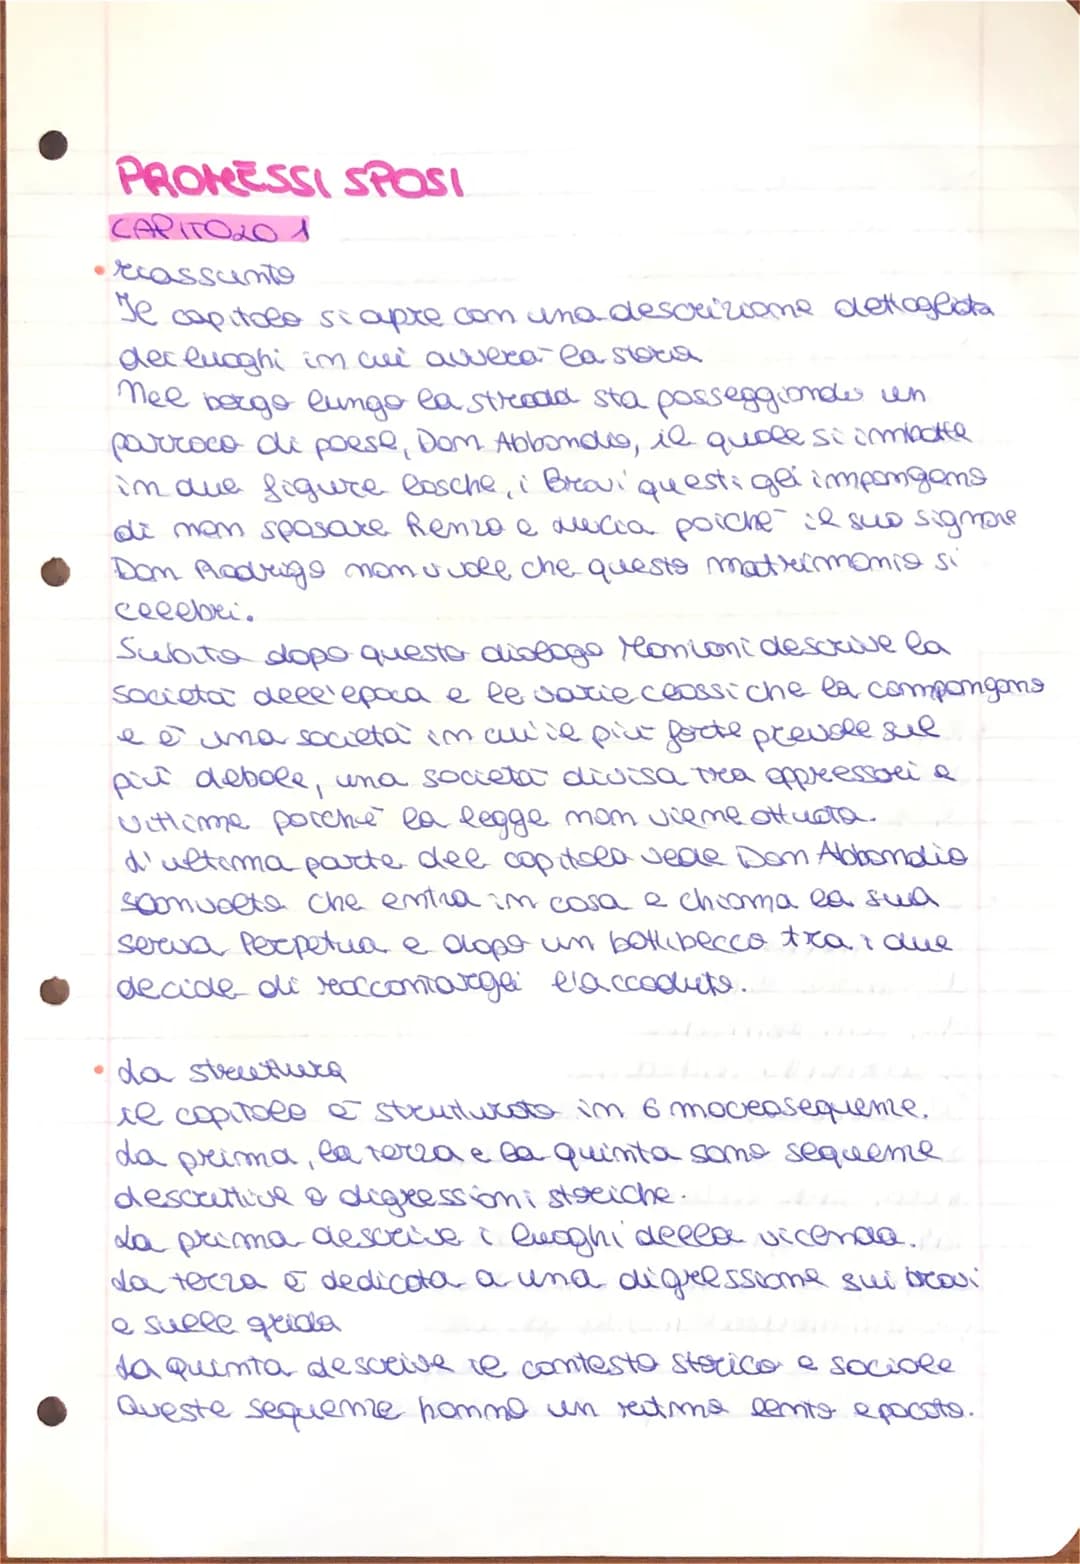 PROMESSI SPOSI
CAPITOLO 1
• riassunto
Il capitolo si apre con una descrizione dettagliata
dei luoghi in cui avverà la storia
Nel borgo lungo la strada sta passeggiando un
parroco di paese, Don Abbondio, il quale si imbatte
in due figure losche, i Bravi questi gli impongono
di non sposare Renzo e Lucia poichè il suo signore
Don Rodrigo non vuole che questo matrimonio si
celebri.
Subito dopo questo dialogo Manzoni descrive la
società dell'epoca e le varie classi che la compongono
e è una società in cui il più forte prevale sul
più debole, una società divisa tra oppressori e
vittime poichè la legge non viene attuata.
L'ultima parte del capitolo vede Don Abbondio
sconvolto che entra in casa e chiama la sua
serva Perpetua e dopo un battibecco tra i due
decide di raccontargli l'accaduto.
• La struttura
il capitolo è strutturato in 6 macrosequenze.
La prima, la terza e la quinta sono sequenze
descrittive o digressioni storiche.
La prima descrive i luoghi della vicenda.
La terza è dedicata a una digressione sui bravi
e sulle grida
La quinta descrive il contesto storico e sociale
Queste sequenze hanno un ritmo lento e pacato.